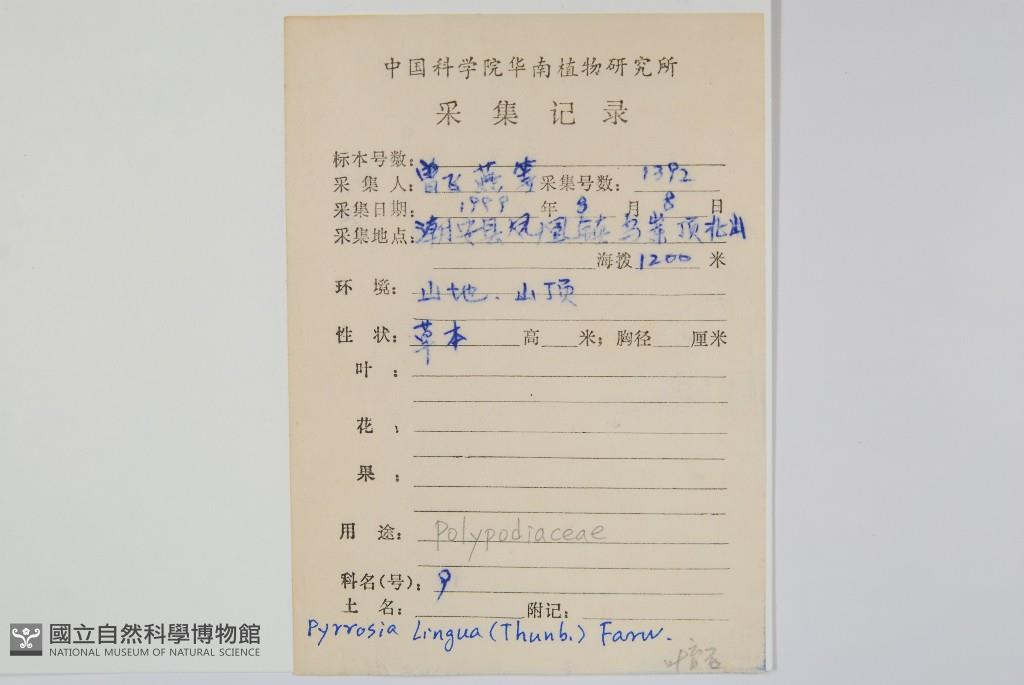 中国科学院华南植物研究所
采集记录
标本号数:
采集人: 曾飞燕等 采集号数: 1392
采集日期: 1999 年 8 月 8 日
采集地点: 潮安县凤凰镇乌岽顶北山
海拨 1200 米
环境: 山地、山顶
性状: 草本 高 米; 胸径 厘米
叶:
花:
果:
用途: Polypodiaceae
科名(号): 9
土名: 附记:
Pyrrosia Lingua (Thunb.) Farw.
國立自然科學博物館
NATIONAL MUSEUM OF NATURAL SCIENCE